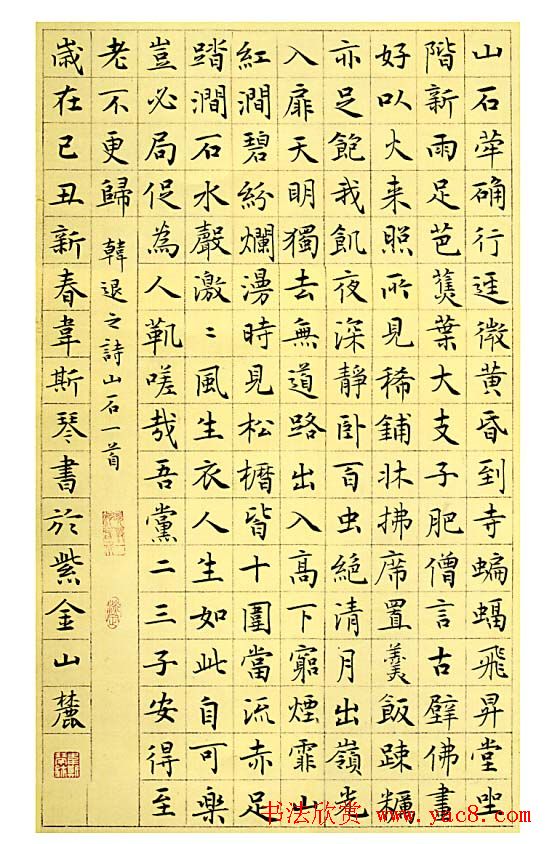 山石犖确行逕微黃昏到寺蝙蝠飛昇堂坐
階新雨足芭蕉葉大支子肥僧言古壁佛畫
好以火来照所見稀鋪牀拂席置羹飯疎糲
亦足飽我飢夜深靜卧百虫絕清月出嶺光
入扉天明獨去無道路出入高下窮煙霏山
紅澗碧紛爛漫時見松櫪皆十圍當流赤足
踏澗石水聲激〻風生衣人生如此自可樂
豈必局促為人鞿嗟哉吾黨二三子安得至
老不更歸 韓退之詩山石一首
歲在己丑新春韋斯琴書於紫金山麓
书法欣赏 www.yac8.com